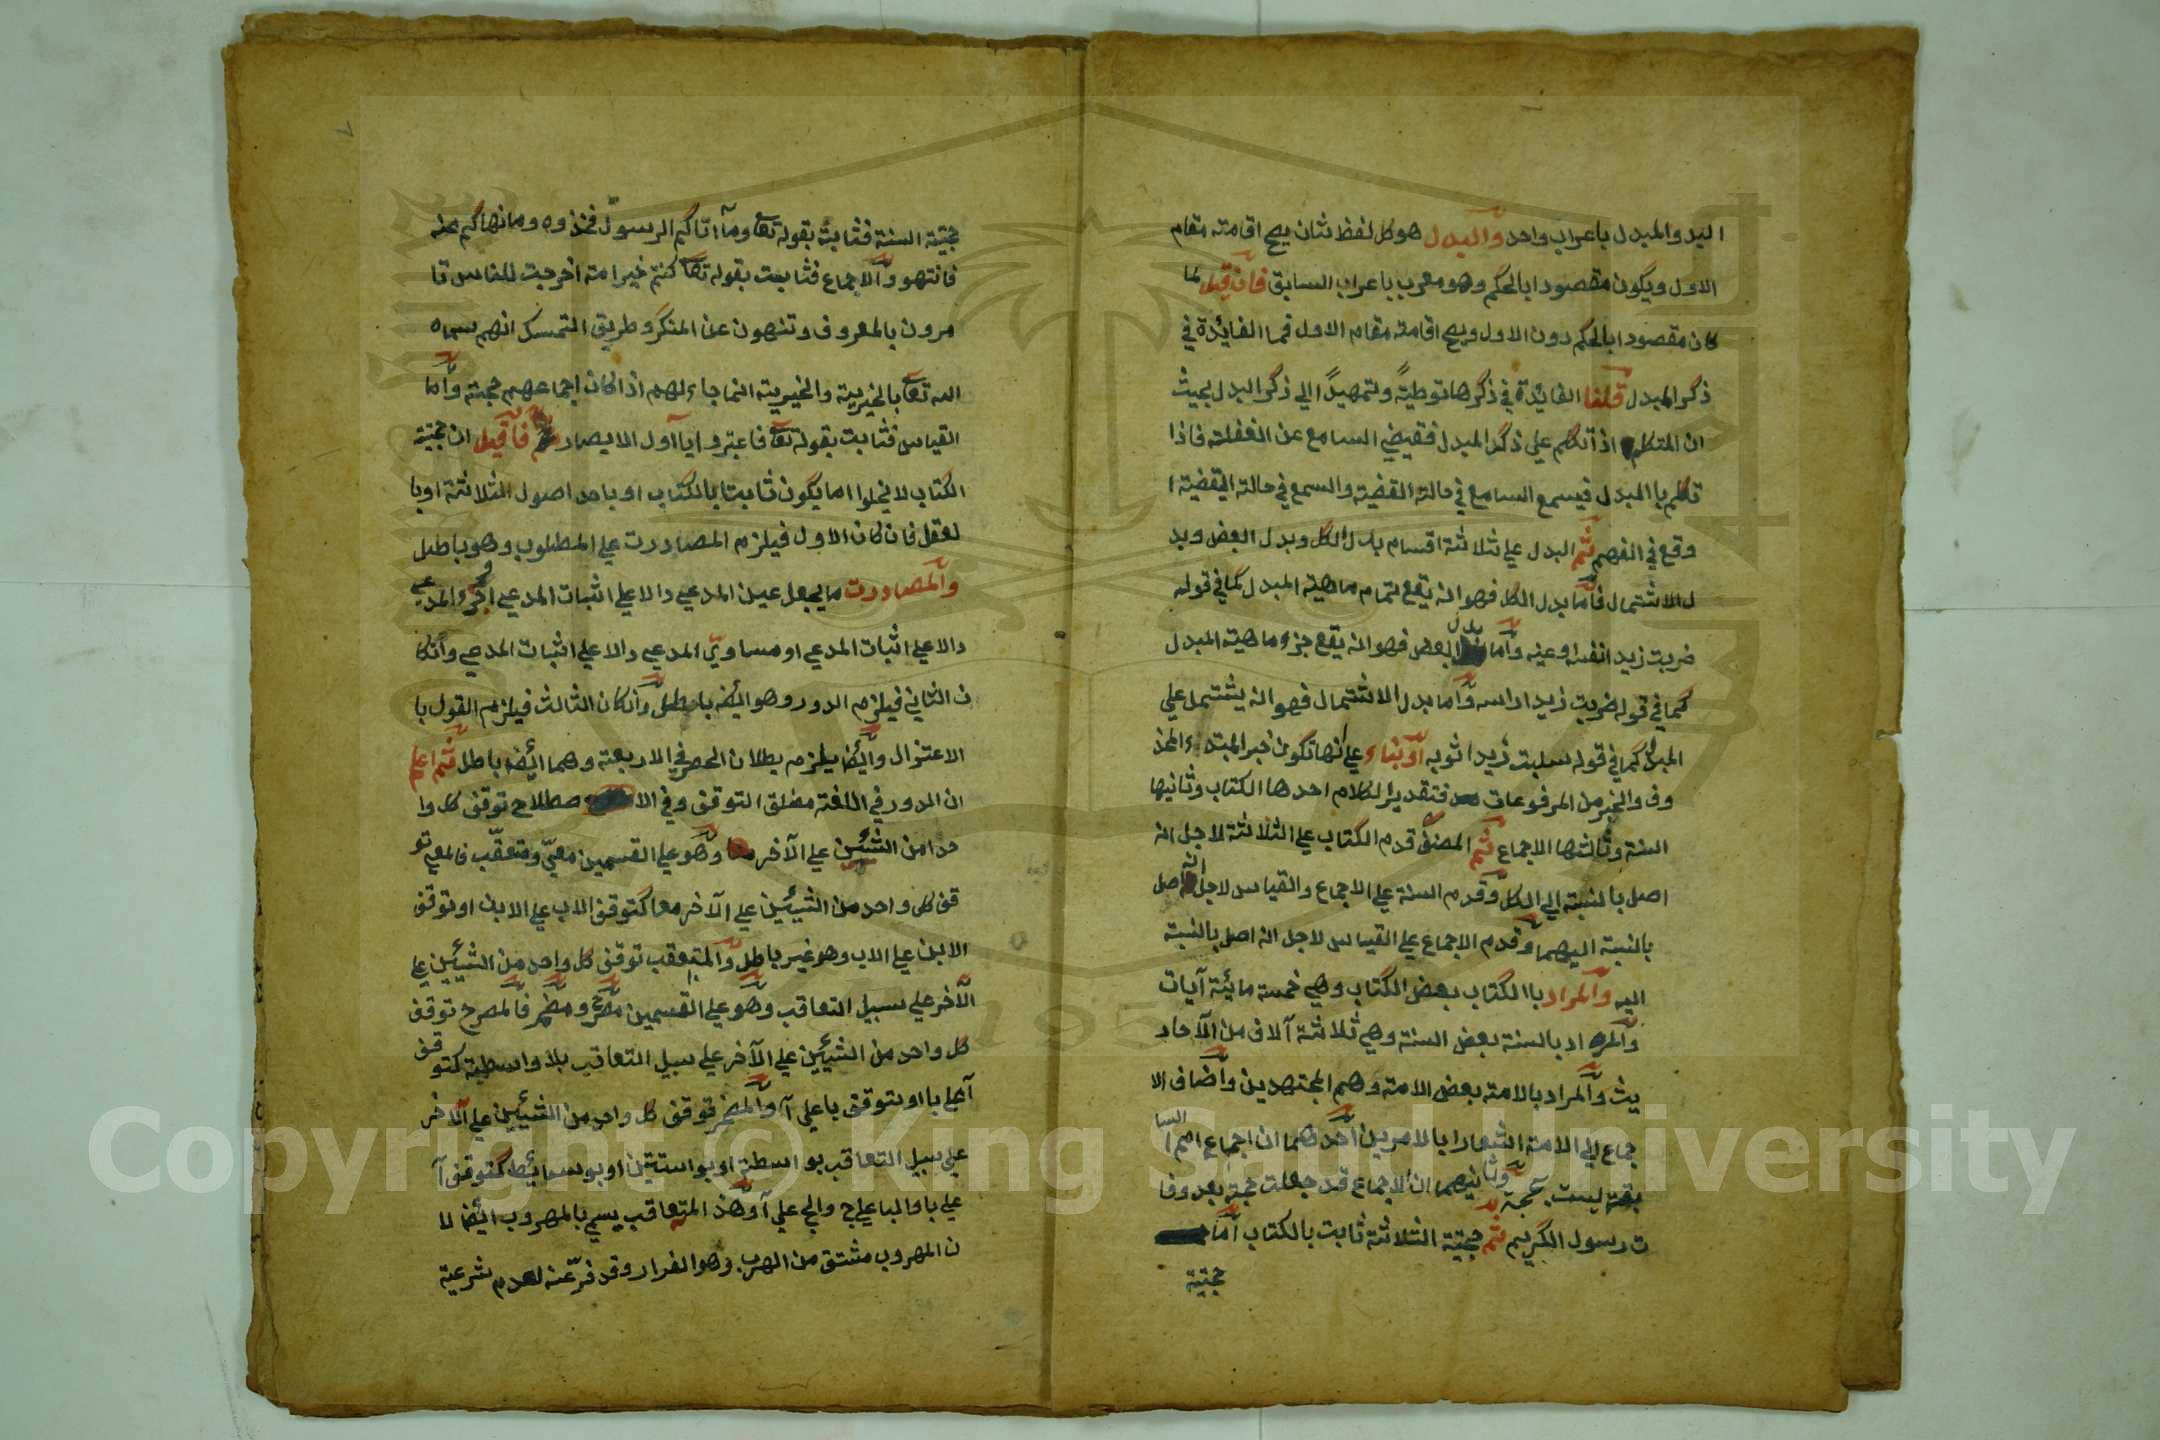 البد والمبدل باعراب واحد والبدل هو كل لفظ ثان يصح اقامته مقام
الاول ويكون مقصودا بالحكم وهو معرب باعراب السابق فان قيل لما
كان مقصودا بالحكم دون الاول ويصح اقامته مقام الاول فما الفائدة في
ذكر المبدل قلنا الفائدة في ذكرها توطيةً وتمهيدًا الي ذكر البدل بحيث
ان المتكلم اذ اتكلم علي ذكر المبدل فقيضي السامع عن الغفلة فاذا
تكلم باالمبدل فيسمع السامع في حالة القضية والسمع في حالة اليقضية ا
وقع في الفهم ثم البدل علي ثلاثة اقسام بدل الكل وبدل البعض وبد
ل الاشتمال فاما بدل الكل فهو انه يقع تمام ماهية المبدل كما في قوله
ضربت زيد انفسه وعينه واما بدل البعض فهو انه يقع جزء ماهية المبدل
كما في قوله ضربت زيد اراسه واما بدل الاشتمال فهو انه يشتمل علي
المبدل كما في قوله سلبت زيد اثوبه او بناء علي انها تكون خبر المبتدء المحذ
وف والخبر من المرفوعات فتقدير الكلام احدها الكتاب وثانيها
السنة وثالثها الاجماع ثم المصنف قدم الكتاب علي الثلاثة لاجل انه
اصل بالنبته الي الكل وقدم السنة علي الاجماع والقياس لاجل انه اصل
بالنبتة اليهما وقدم الاجماع علي القياس لاجل انه اصل بالنبتة
اليه والمراد باالكتاب بعض الكتاب وهي خمسة مائة آيات
والمراد بالسنة بعض السنة وهي ثلاثة آلاف من الآحاد
يث والمراد بالامته بعض الامة وهم المجتهدين واضاف الا
جماع الي الامة اشعارا بالامرين احدهما ان اجماع امم السا
بقة ليست بحجة وثانيهما ان الاجماع قد جعلت حجة بعد وفا
ت رسول الكريم ثم حجية الثلاثة ثابت بالكتاب اما
حجية
٧
حجية السنة فثابتة بقوله تعا وما اتاكم الرسول فخذوه وما نهاكم عنه
فانتهو والاجماع فثابت بقوله تعا كنتم خير امة اخرجت للناس تا
مرون بالمعروف وتنهون عن المنكر وطريق التمسك انهم سماه
الله تعا بالخيرية والخيرية انما جاء لهم اذا كان اجماعهم حجته واما
القياس فثابت بقوله تعا فاعتبروا يا آول الابصار فا قيل ان حجية
الكتاب لا يخلوا اما يكون ثابتا بالكتاب او باحد اصول الثلاثة او با
لعقل فان كان الاول فيلزم المصادرت علي المطلوب وهو باطل
والمصادرت ما يجعل عين المدعي دالا علي اثبات المدعي او جزء المدعي
دالا علي اثبات المدعي او مساوي المدعي دالا علي اثبات المدعي وان كا
ن الثاني فيلزم الدور وهو ايضا باطل وان كان الثالث فيلزم القول با
الاعتزال وايضا يلزم بطلان الحصر في الاربعة وهما ايضا باطل ثم اعلم
ان الدور في اللغة مطلق التوقف وفي الا صطلاح توقف كل وا
حد من الشيئين علي الآخر وهو علي القسمين معيّ ومتعقّب فالمعي تو
قف كل واحد من الشيئين علي الآخر معا كتوقف الاب علي الابن او توقف
الابن علي الاب وهو غير باطل والمتعقب توقف كل واحد من الشيئين علي
الآخر علي سبيل التعاقب وهو علي القسمين مصرح ومضمر فالمصرح توقف
كل واحد من الشيئين علي الآخر علي سبيل التعاقب بلا واسطة كتوقف
آ علي با او بتوقف با علي آ والمضمر توقف كل واحد من الشيئين علي الآخر
علي سبيل التعاقب بواسطة او بواستتين او بوسائط كتوقف آ
علي با والبا علي ج والج علي آ وهذ المتعاقب يسمي بالمهروب ايضا لا
ن المهروب مشتق من الهرب وهو الفرار وقد فرّ عنه لعدم شرعية
Copyright © King Saud University